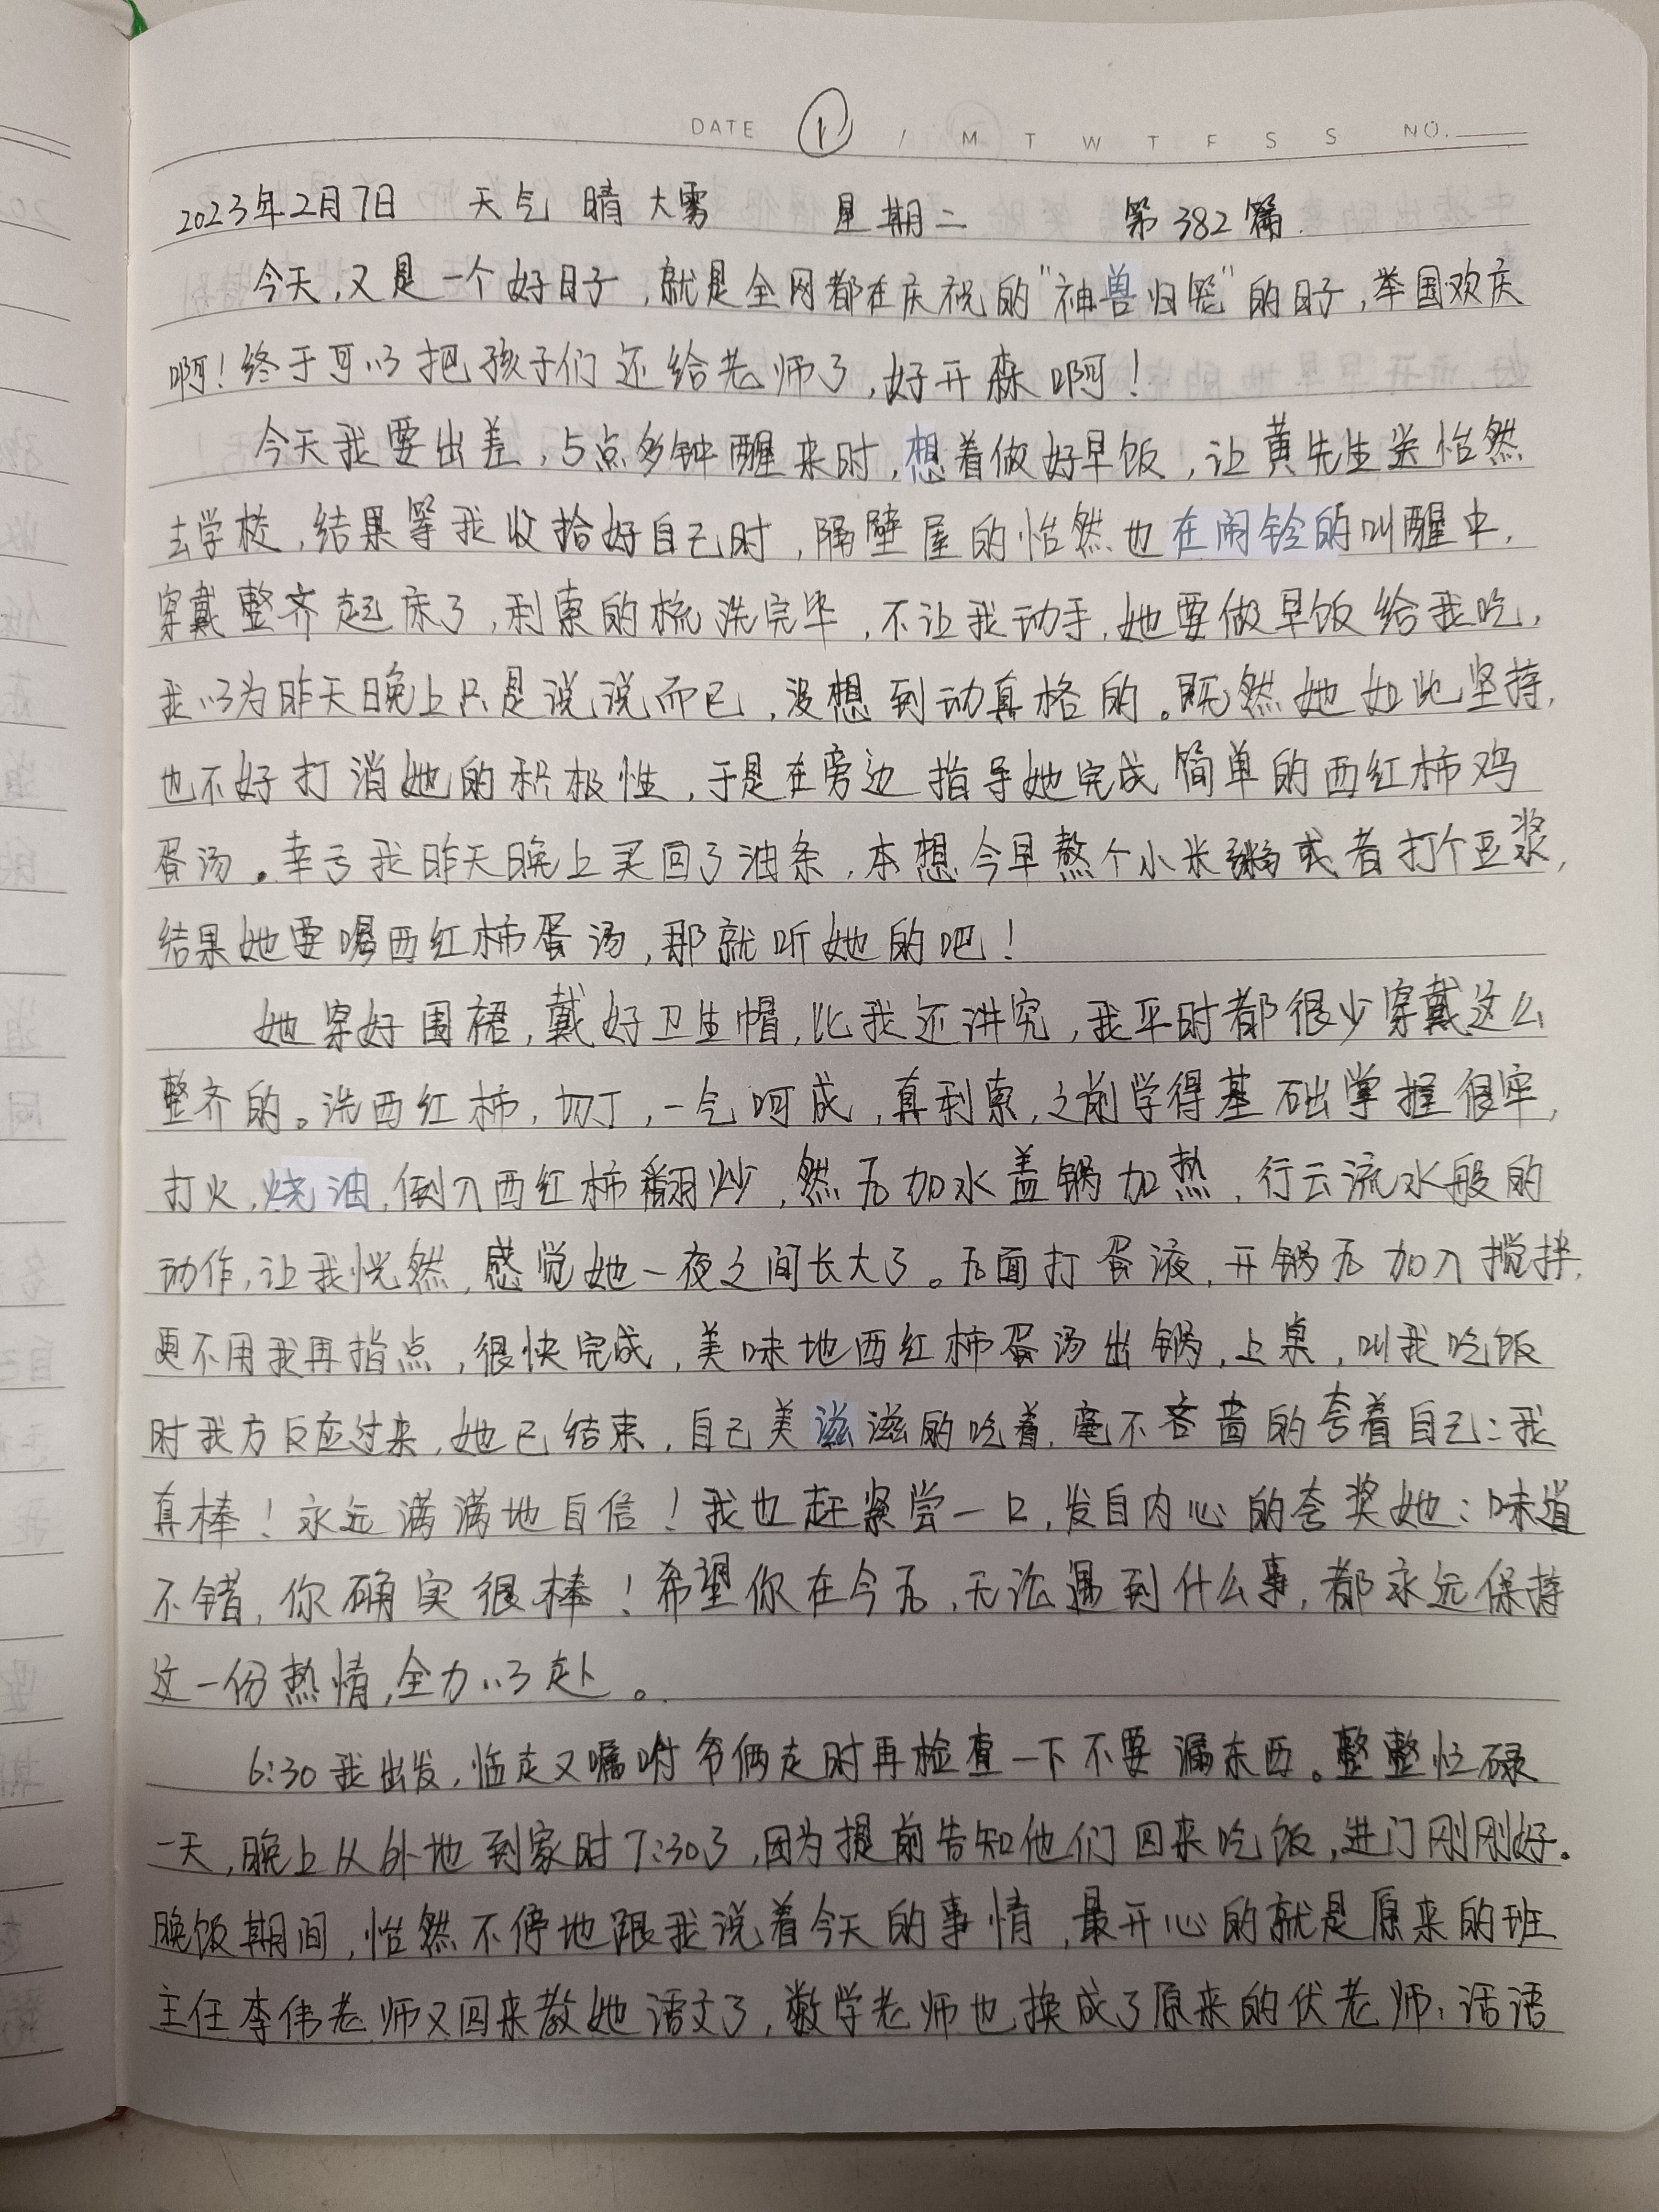 DATE ① / M T W T F S S NO.
2023年2月7日 天气 晴 大雾 星期二 第382篇.
今天,又是一个好日子,就是全网都在庆祝的"神兽归笼"的日子,举国欢庆
啊!终于可以把孩子们还给老师了,好开森啊!
今天我要出差,5点多钟醒来时,想着做好早饭,让黄先生送怡然
去学校,结果等我收拾好自己时,隔壁屋的怡然也在闹铃的叫醒中,
穿戴整齐起床了,利索的梳洗完毕,不让我动手,她要做早饭给我吃,
我以为昨天晚上只是说说而已,没想到动真格的。既然她如此坚持,
也不好打消她的积极性,于是在旁边指导她完成简单的西红柿鸡
蛋汤。幸亏我昨天晚上买回了油条,本想今早熬个小米粥或者打个豆浆,
结果她要喝西红柿蛋汤,那就听她的吧!
她穿好围裙,戴好卫生帽,比我还讲究,我平时都很少穿戴这么
整齐的。洗西红柿,切丁,一气呵成,真利索,之前学得基础掌握很牢,
打火,烧油,倒入西红柿翻炒,然后加水盖锅加热,行云流水般的
动作,让我恍然,感觉她一夜之间长大了。后面打蛋液,开锅后加入搅拌,
更不用我再指点,很快完成,美味地西红柿蛋汤出锅,上桌,叫我吃饭
时我方反应过来,她已结束,自己美滋滋的吃着,毫不吝啬的夸着自己:我
真棒!永远满满地自信!我也赶紧尝一口,发自内心的夸奖她:味道
不错,你确实很棒!希望你在今后,无论遇到什么事,都永远保持
这一份热情,全力以赴。
6:30我出发,临走又嘱咐爷俩走时再检查一下不要漏东西。整整忙碌
一天,晚上从外地到家时7:30了,因为提前告知他们回来吃饭,进门刚刚好.
晚饭期间,怡然不停地跟我说着今天的事情,最开心的就是原来的班
主任李伟老师又回来教她语文了,数学老师也换成了原来的伏老师,话语